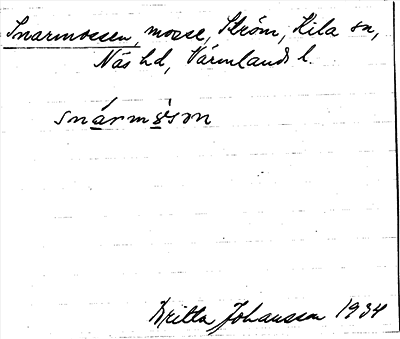 Snarmossen, mosse, Ström, Kila sn,
Näs hd, Värmlands l.
snármòsən
Britta Johansson 1934